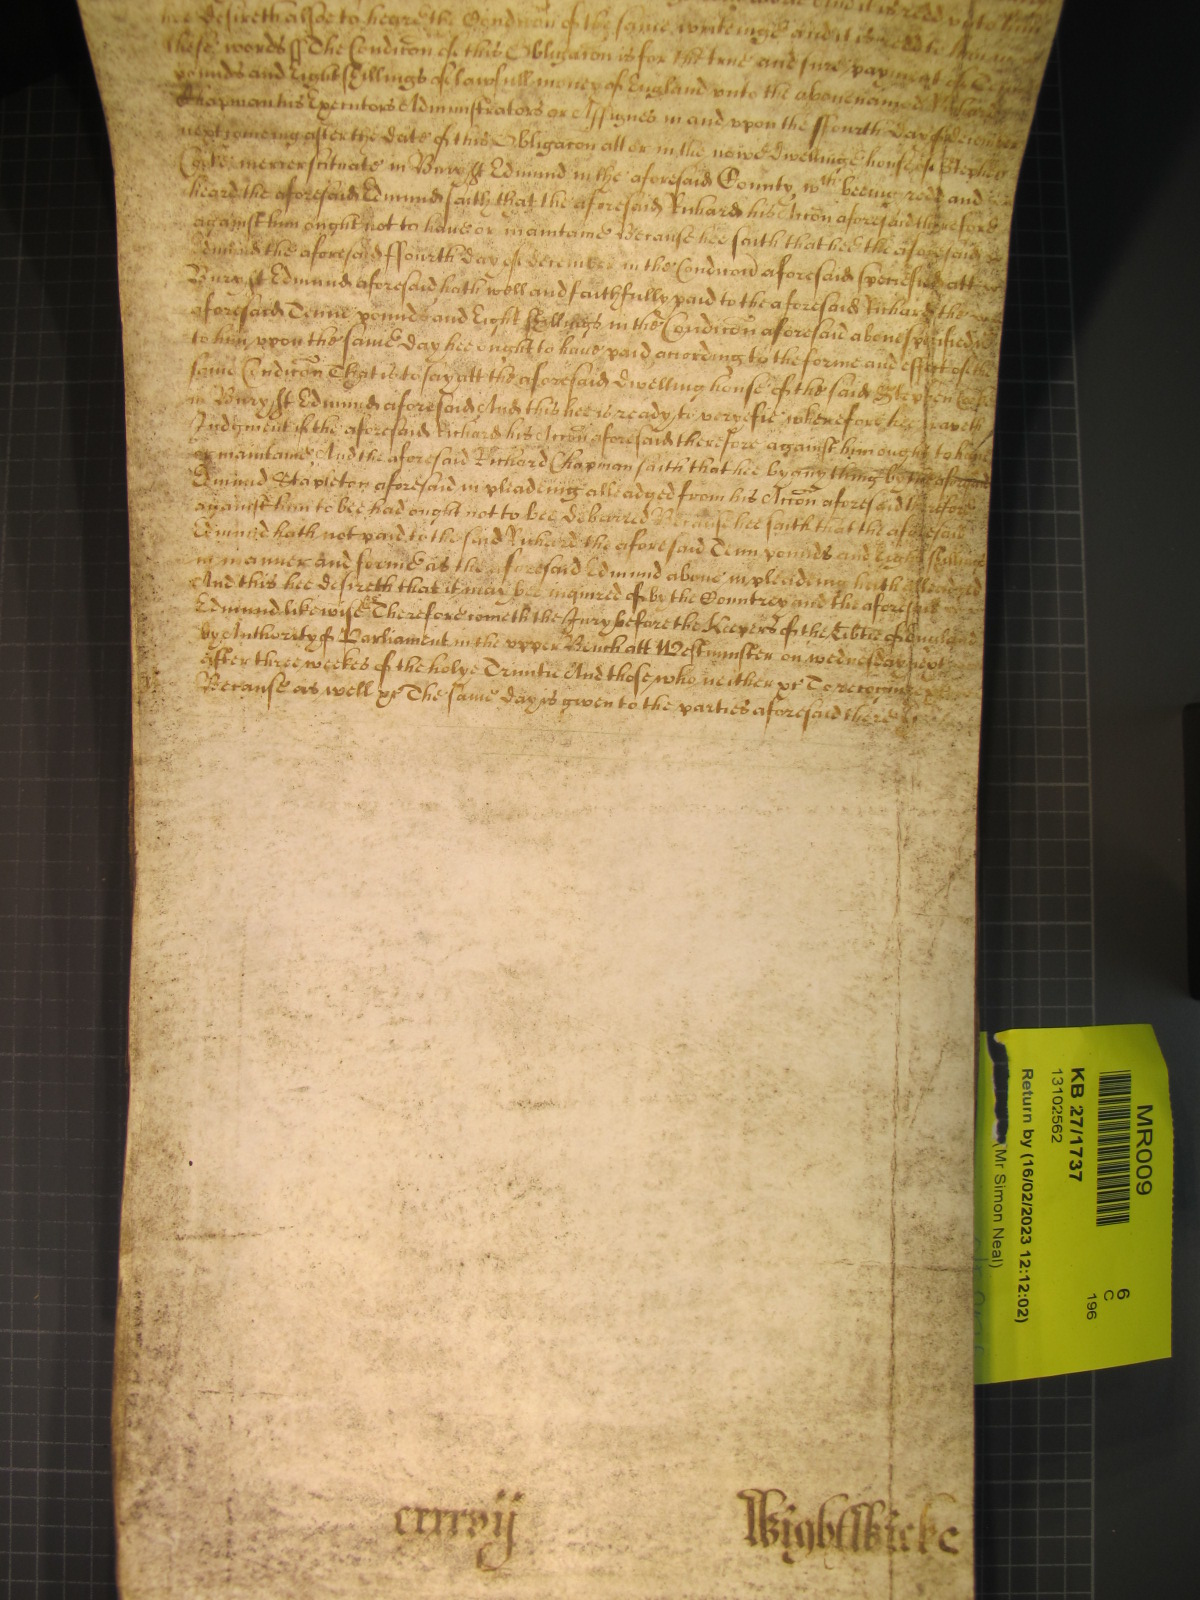 hee desireth alsoe to heare the Condic̃on of the same writeinge and it is read to him in
these words ss The Condic̃on of this Obligac̃on is for the true and sure payment of Tenne
pounds and Eight shillings of lawfull money of England unto the abovenamed Richard
Chapman his Executors Administrators or Assignes in and vpon the ffourth day of december
next comeing after the date of this Obligac̃on att or in the nowe dwellinge house of Stephen
mercer scituate in Bury St Edmund in the aforesaid County, wch beeing read and
heard the aforesaid Edmund saith that the aforesaid Richard his Acc̃on aforesaid therefore
against him ought not to have or maintaine Because hee saith that hee the aforesaid
Edmund the aforesaid ffourth day of december in the Condic̃on aforesaid specefied att
Bury St Edmund aforesaid hath well and faithfully paid to the aforesaid Richard the
aforesaid Tenne pounds and Eight shillings in the Condic̃on aforesaid above specified
to him vpon the same day hee ought to have paid according to the forme and effect of the
same Condic̃on That is to say att the aforesaid dwelling house of the said Stephen
in Bury St Edmund aforesaid And this hee is ready to veryefie wherefore hee prayeth
Judgment if the aforesaid Richard his Acc̃on aforesaid therefore against him ought to have
or maintaine, And the aforesaid Richard Chapman saith that hee by any thing by the aforesaid
Edmund Stapleton aforesaid in pleadeing alleadged from his Acc̃on aforesaid therefore
against him to bee had ought not to bee debarred Because hee saith that the aforesaid
Edmund hath not paid to the said Richard the aforesaid Tenn pounds and Eight shillings
in manner and forme as the aforesaid Edmund above in pleadeing hath alleadged
And this hee desireth that it may bee inquired of by the Countrey and the aforesaid
Edmund likewise Therefore cometh the Jury before the Keepers of the Libtie of England
by Authority of Parliament in the vpper Bench att Westminster on wednesday next
after three weekes of the holye Trinitie And those who neither &c To recognize
Because as well &c The same day is given to the parties aforesaid there
cxxxvij Wightwicke
MR009
6
C
196
KB 27/1737
13102562
Return by (16/02/2023 12:12:02)
(Mr Simon Neal)